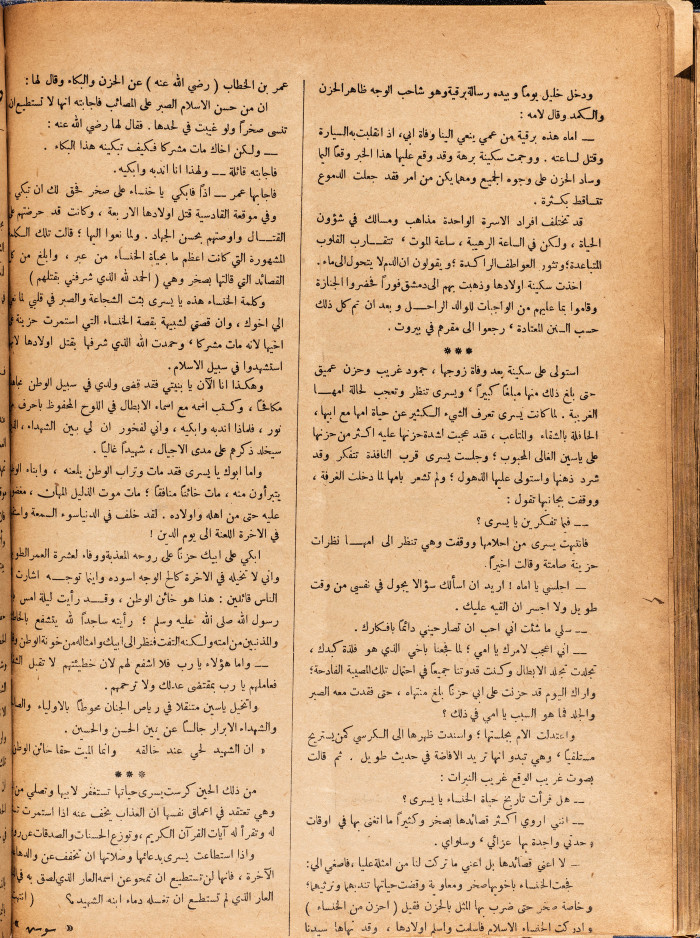 ودخل خليل يوماً وبيده رسالة برقية وهو شاحب الوجه ظاهر الحزن
والكمد وقال لامه :
— اماه هذه برقية من عمي ينعي الينا وفاة ابي، اذ انقلبت به السيارة
وقتل لساعته . ووجمت سكينة برهة وقد وقع عليها هذا الخبر وقعاً اليما
وساد الحزن على وجوه الجميع ومهما يكن من امر فقد جعلت الدموع
تتساقط بكثرة .
قد تختلف افراد الاسرة الواحدة مذاهب ومسالك في شؤون
الحياة ، ولكن في الساعة الرهيبة ، ساعة الموت ، تتقارب القلوب
المتباعدة؛ وتثور العواطف الراكدة؛ ويقولون ان الدم لا يتحول الى ماء.
اخذت سكينة اولادها وذهبت بهم الى دمشق فوراً فحضروا الجنازة
وقاموا بما عليهم من الواجبات للوالد الراحل وبعد ان تم كل ذلك
حسب السنن المعتادة ، رجعوا الى مقرهم في بيروت .
***
استولى على سكينة بعد وفاة زوجها ، جمود غريب وحزن عميق
حتى بلغ ذلك منها مبلغاً كبيراً ، ويسرى تنظر وتعجب لحالة امها
الغريبة . لما كانت يسرى تعرف الشيء الكثير عن حياة امها مع ابيها ،
الحافلة بالشقاء والمتاعب ، فقد عجبت لشدة حزنها عليه اكثر من حزنها
على ياسين الغالي المحبوب ؛ وجلست يسرى قرب النافذة تتفكر وقد
شرد ذهنها واستولى عليها الذهول ؛ ولم تشعر بامها لما دخلت الغرفة ،
ووقفت بجانبها تقول :
— فيما تفكرين يا يسرى ؟
فانتبهت يسرى من احلامها ووقفت وهي تنظر الى امها نظرات
حزينة صامتة وقالت اخيراً.
— اجلسي يا اماه ! اريد ان اسألك سؤالا يجول في نفسي من وقت
طويل ولا اجسر ان القيه عليك .
— سلي ما شئت اني احب ان تصارحيني دائماً بافكارك .
— اني اعجب لامرك يا امي ؛ لما فجعنا باخي الذي هو فلذة كبدك ،
تجلدت تجلد الابطال وكنت قدوتنا جميعاً في احتمال تلك المصيبة الفادحة؛
واراك اليوم قد حزنت على ابي حزناً بلغ منتهاه ، حتى فقدت معه الصبر
والجلد فما هو السبب يا امي في ذلك ؟
واعتدلت الام بجلستها ؛ واسندت ظهرها الى الكرسي كمن يستريح
مستلقياً ، وهي تبدو انها تريد الافاضة في حديث طويل . ثم قالت
بصوت غريب الوقع غريب النبرات :
— هل قرأت تاريخ حياة الخنساء يا يسرى ؟
— انني اروي اكثر قصائدها بصخر وكثيراً ما اتغنى بها في اوقات
وحدتي واجدة بها عزائي ، وسلواي .
— لا اعني قصائدها بل اعني ما تركت لنا من امثلة عليا ، فاصغي الي:
فجعت الخنساء باخويها صخر ومعاوية وقضت حياتها تندبهما وترثيهما؛
وخاصة صخر حتى ضرب بها المثل بالحزن فقيل ( احزن من الخنساء )
وادركت الخنساء الاسلام فاسلمت واسلم اولادها ، وقد نهاها سيدنا
عمر بن الخطاب ( رضي الله عنه ) عن الحزن والبكاء وقال لها :
ان من حسن الاسلام الصبر على المصائب فاجابته انها لا تستطيع ان
تنسى صخراً ولو غيبت في لحدها . فقال لها رضي الله عنه :
— ولكن اخاك مات مشركا فكيف تبكينه هذا البكاء .
فاجابته قائلة — ولهذا انا اندبه وابكيه.
فاجابها عمر — اذاً فابكي يا خنساء على صخر فحق لك ان تبكي
وفي موقعة القادسية قتل اولادها الاربعة ، وكانت قد حرضتهم على
القتال واوصتهم بحسن الجهاد . ولما نعوا اليها ؛ قالت تلك الكلمة
المشهورة التي كانت اعظم ما بحياة الخنساء من عبر ، وابلغ من كل
القصائد التي قالتها بصخر وهي ( الحمد لله الذي شرفني بقتلهم )
وكلمة الخنساء هذه يا يسرى بثت الشجاعة والصبر في قلبي لما
الي اخوك ، وان قصتي لشبيهة بقصة الخنساء التي استمرت حزينة
اخيها لانه مات مشركا ، وحمدت الله الذي شرفها بقتل اولادها
استشهدوا في سبيل الاسلام.
وهكذا انا الآن يا بنيتي فقد قضى ولدي في سبيل الوطن
مكافحاً ، وكتب اسمه مع اسماء الابطال في اللوح المحفوظ باحرف
نور ، فلماذا اندبه وابكيه ، واني لفخور ان لي بين الشهداء ،
سيخلد ذكرهم على مدى الاجيال ، شهيداً غالياً.
واما ابوك يا يسرى فقد مات وتراب الوطن يلعنه ، وابناء
يتبرأون منه ، مات خائناً منافقاً ؛ مات موت الذليل المهان ،
عليه حتى من اهله واولاده . لقد خلف في الدنيا سوء السمعة
في الآخرة اللعنة الى يوم الدين !
ابكي على ابيك حزناً على روحه المعذبة ووفاء لعشرة العمر
واني لاتخيله في الآخرة كالح الوجه اسوده واينما توجه اشارت
الناس قائلين : هذا هو خائن الوطن ، وقد رأيت ليلة امس
رسول الله صلى الله عليه وسلم ؛ رأيته ساجداً لله يتشفع
والمذنبين من امته ولكنه التفت فنظر الى ابيك وامثاله من خونة الوطن
— واما هؤلاء يا رب فلا اشفع لهم لان خطيئتهم لا تقبل
فعاملهم يا رب بمقتضى عدلك ولا ترحمهم .
واتخيل ياسين متنقلا في رياض الجنان محوطاً بالاولياء
والشهداء الابرار جالساً عن يمين الحسن والحسين .
« ان الشهيد لحي عند خالقه وانما الميت حقا خائن الوطن
***
من ذلك الحين كرست يسرى حياتها تستغفر لابيها وتصلي من
وهي تعتقد في اعماق نفسها ان العذاب يخف عنه اذا استمرت
له وتقرأ له آيات القرآن الكريم ، وتوزع الحسنات والصدقات عن
واذا استطاعت يسرى بدعائها وصلاتها ان تخفف عن والدها
الآخرة ، فانها لن تستطيع ان تمحو عن اسمه العار الذي لصق به في
العار الذي لم تستطع ان تغسله دماء ابنه الشهيد.؟